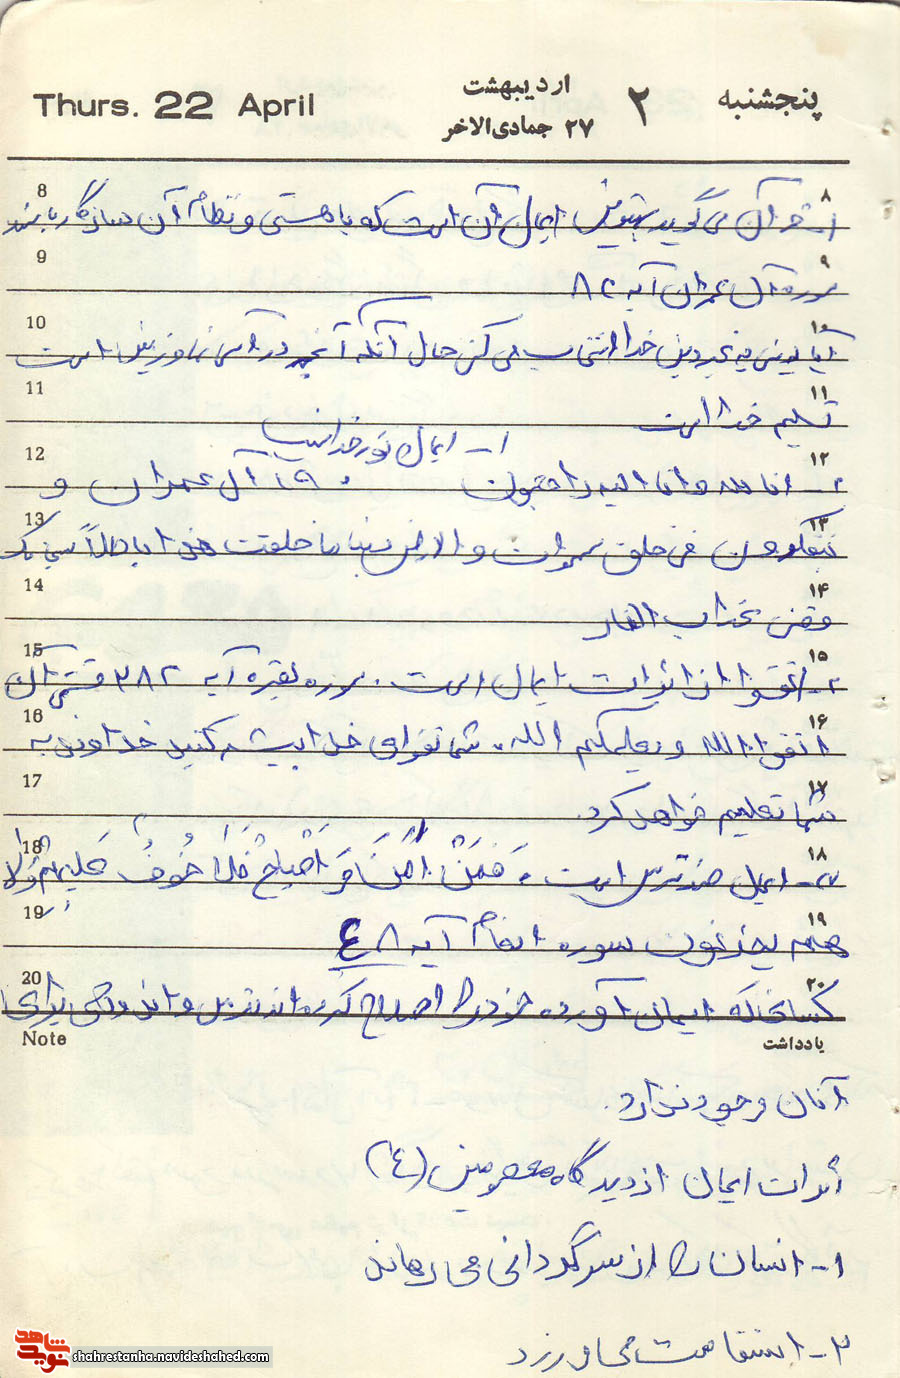 Thurs. 22 April
پنجشنبه ۲ اردیبهشت
۲۷ جمادی‌الاخر
8 ۸
۱- قرآن می گوید بهترین ایمان آن است که با هستی و نظام آن سازگار باشد
9 ۹
سوره آل عمران آیه ۸۲
10 ۱۰
آیا دینی به غیر دین خدا انتخاب می کنی حال آنکه آنچه در آسمان و زمین است
11 ۱۱
تسلیم خدا است
۱- ایمان نور خداست
12 ۱۲
۲- انا لله و انا الیه راجعون ۱۹۰ آل عمران و
13 ۱۳
یتفکرون فی خلق سموات و الارض ربنا ما خلقت هذا باطلاً سبحانک
14 ۱۴
وقنی عذاب النار
15 ۱۵
۲- تقوا از اثرات ایمان است. سوره بقره آیه ۲۸۲ قسمتی از آن
16 ۱۶
اتقوا الله و یعلمکم الله. شما تقوای خدا پیشه کنید خداوند به
17 ۱۷
شما تعلیم خواهد کرد.
18 ۱۸
۳- ایمان ضد ترس است. فَمَنْ اٰمَنَ وَ اَصْلَحَ فَلاَ خَوْفُ عَلَیْهِمْ وَلا
19 ۱۹
هم یحزنون سوره انعام آیه ۴۸
20 ۲۰
کسانیکه ایمان آورده خود را اصلاح کرده اند ترس و اندوهی برای
Note یادداشت
آنان وجود ندارد.
اثرات ایمان از دیدگاه معصومین (ع)
۱- انسان را از سرگردانی می رهاند
۲- استقامت می ورزد
شاهد نوید
shahrestanha.navideshahed.com